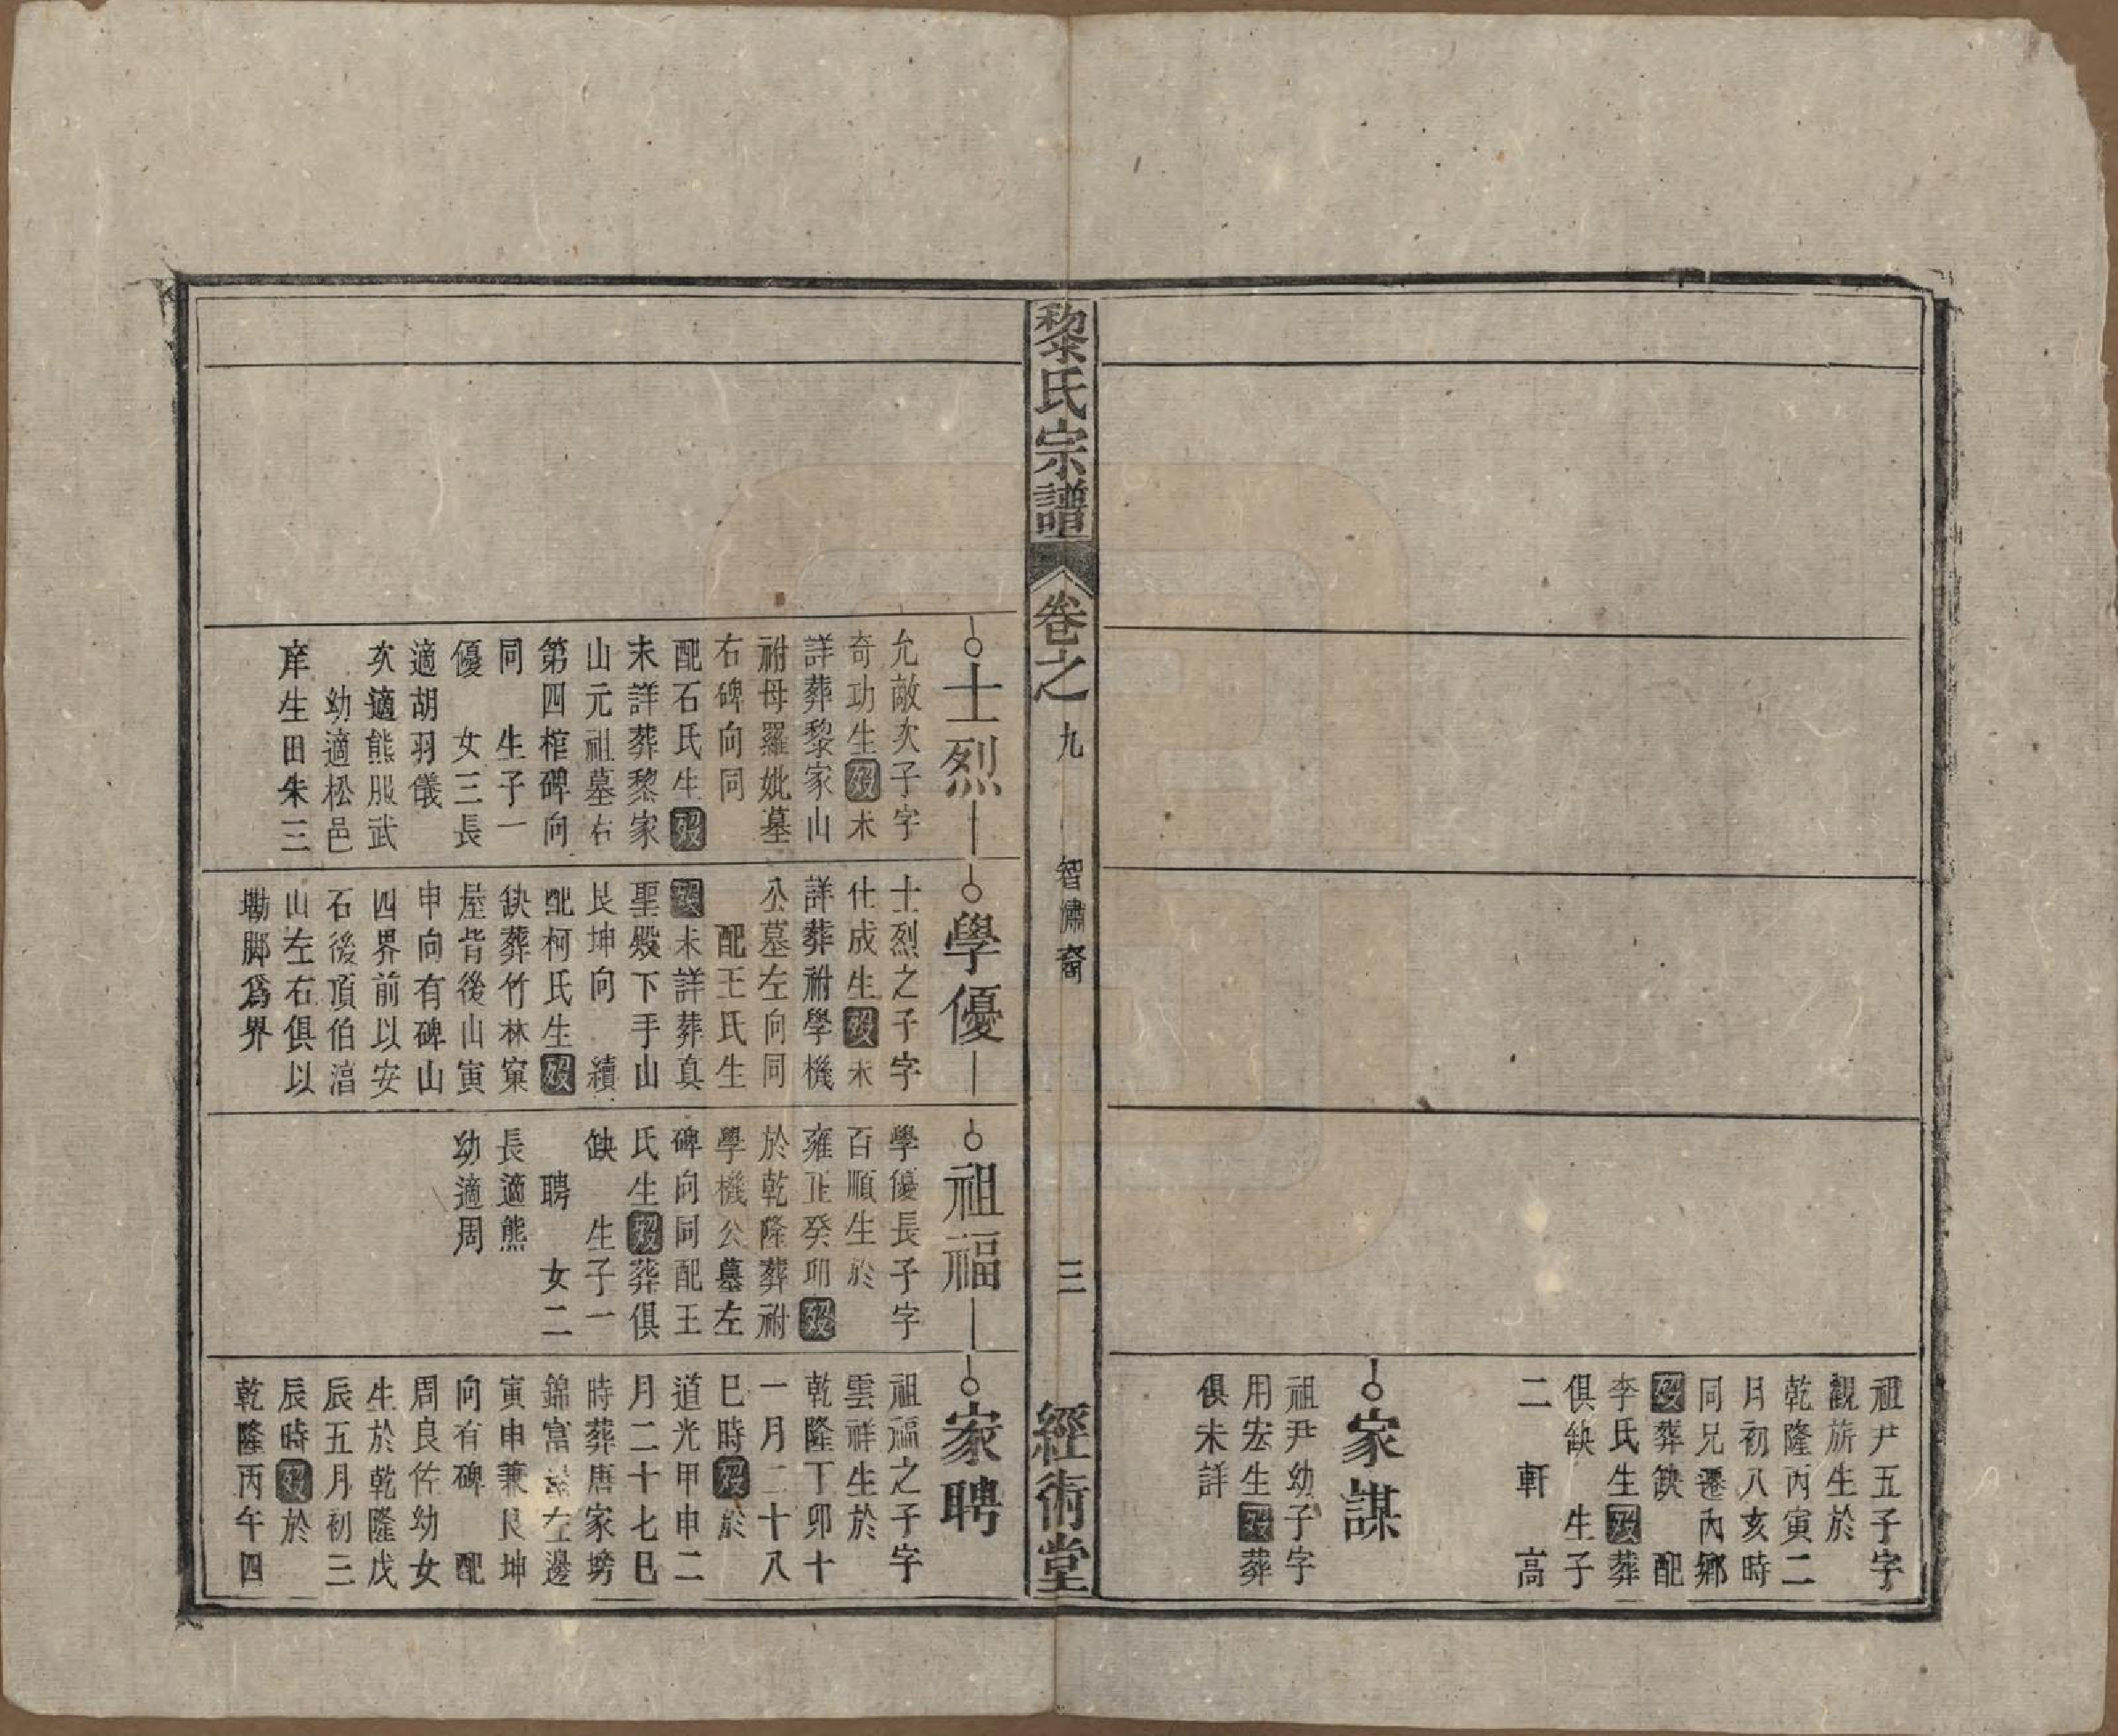 祖尹五子字
觀旂生於
乾隆丙寅二
月初八亥時
同兄遷內鄉
歿葬缺 配
李氏生歿葬
俱缺 生子
二 軒 高
家謀
祖尹幼子字
用宏生歿葬
俱未詳
黎氏宗譜 卷之九 智㴋裔 三 經術堂
士烈
允敵次子字
奇功生歿未
詳葬黎家山
祔母羅妣墓
右碑向同
配石氏生歿
未詳葬黎家
山元祖墓右
第四棺碑向
同 生子一
優 女三長
適胡羽儀
次適熊服武
幼適松邑
庠生田朱三
學優
士烈之子字
仕成生歿未
詳葬祔學機
公墓左向同
配王氏生
歿未詳葬真
聖殿下手山
艮坤向 續
配柯氏生歿
缺葬竹林窠
屋背後山寅
申向有碑山
四界前以安
石後頂伯湻
山左右俱以
墈腳為界
祖福
學優長子字
百順生於
雍正癸卯歿
於乾隆葬祔
學機公墓左
碑向同配王
氏生歿葬俱
缺 生子一
聘 女二
長適熊
幼適周
家聘
祖福之子字
雲祥生於
乾隆丁卯十
一月二十八
巳時歿於
道光甲申二
月二十七巳
時葬唐家塝
錦富 左邊
寅申兼艮坤
向有碑 配
周良佐幼女
生於乾隆戊
辰五月初三
辰時歿於
乾隆丙午四